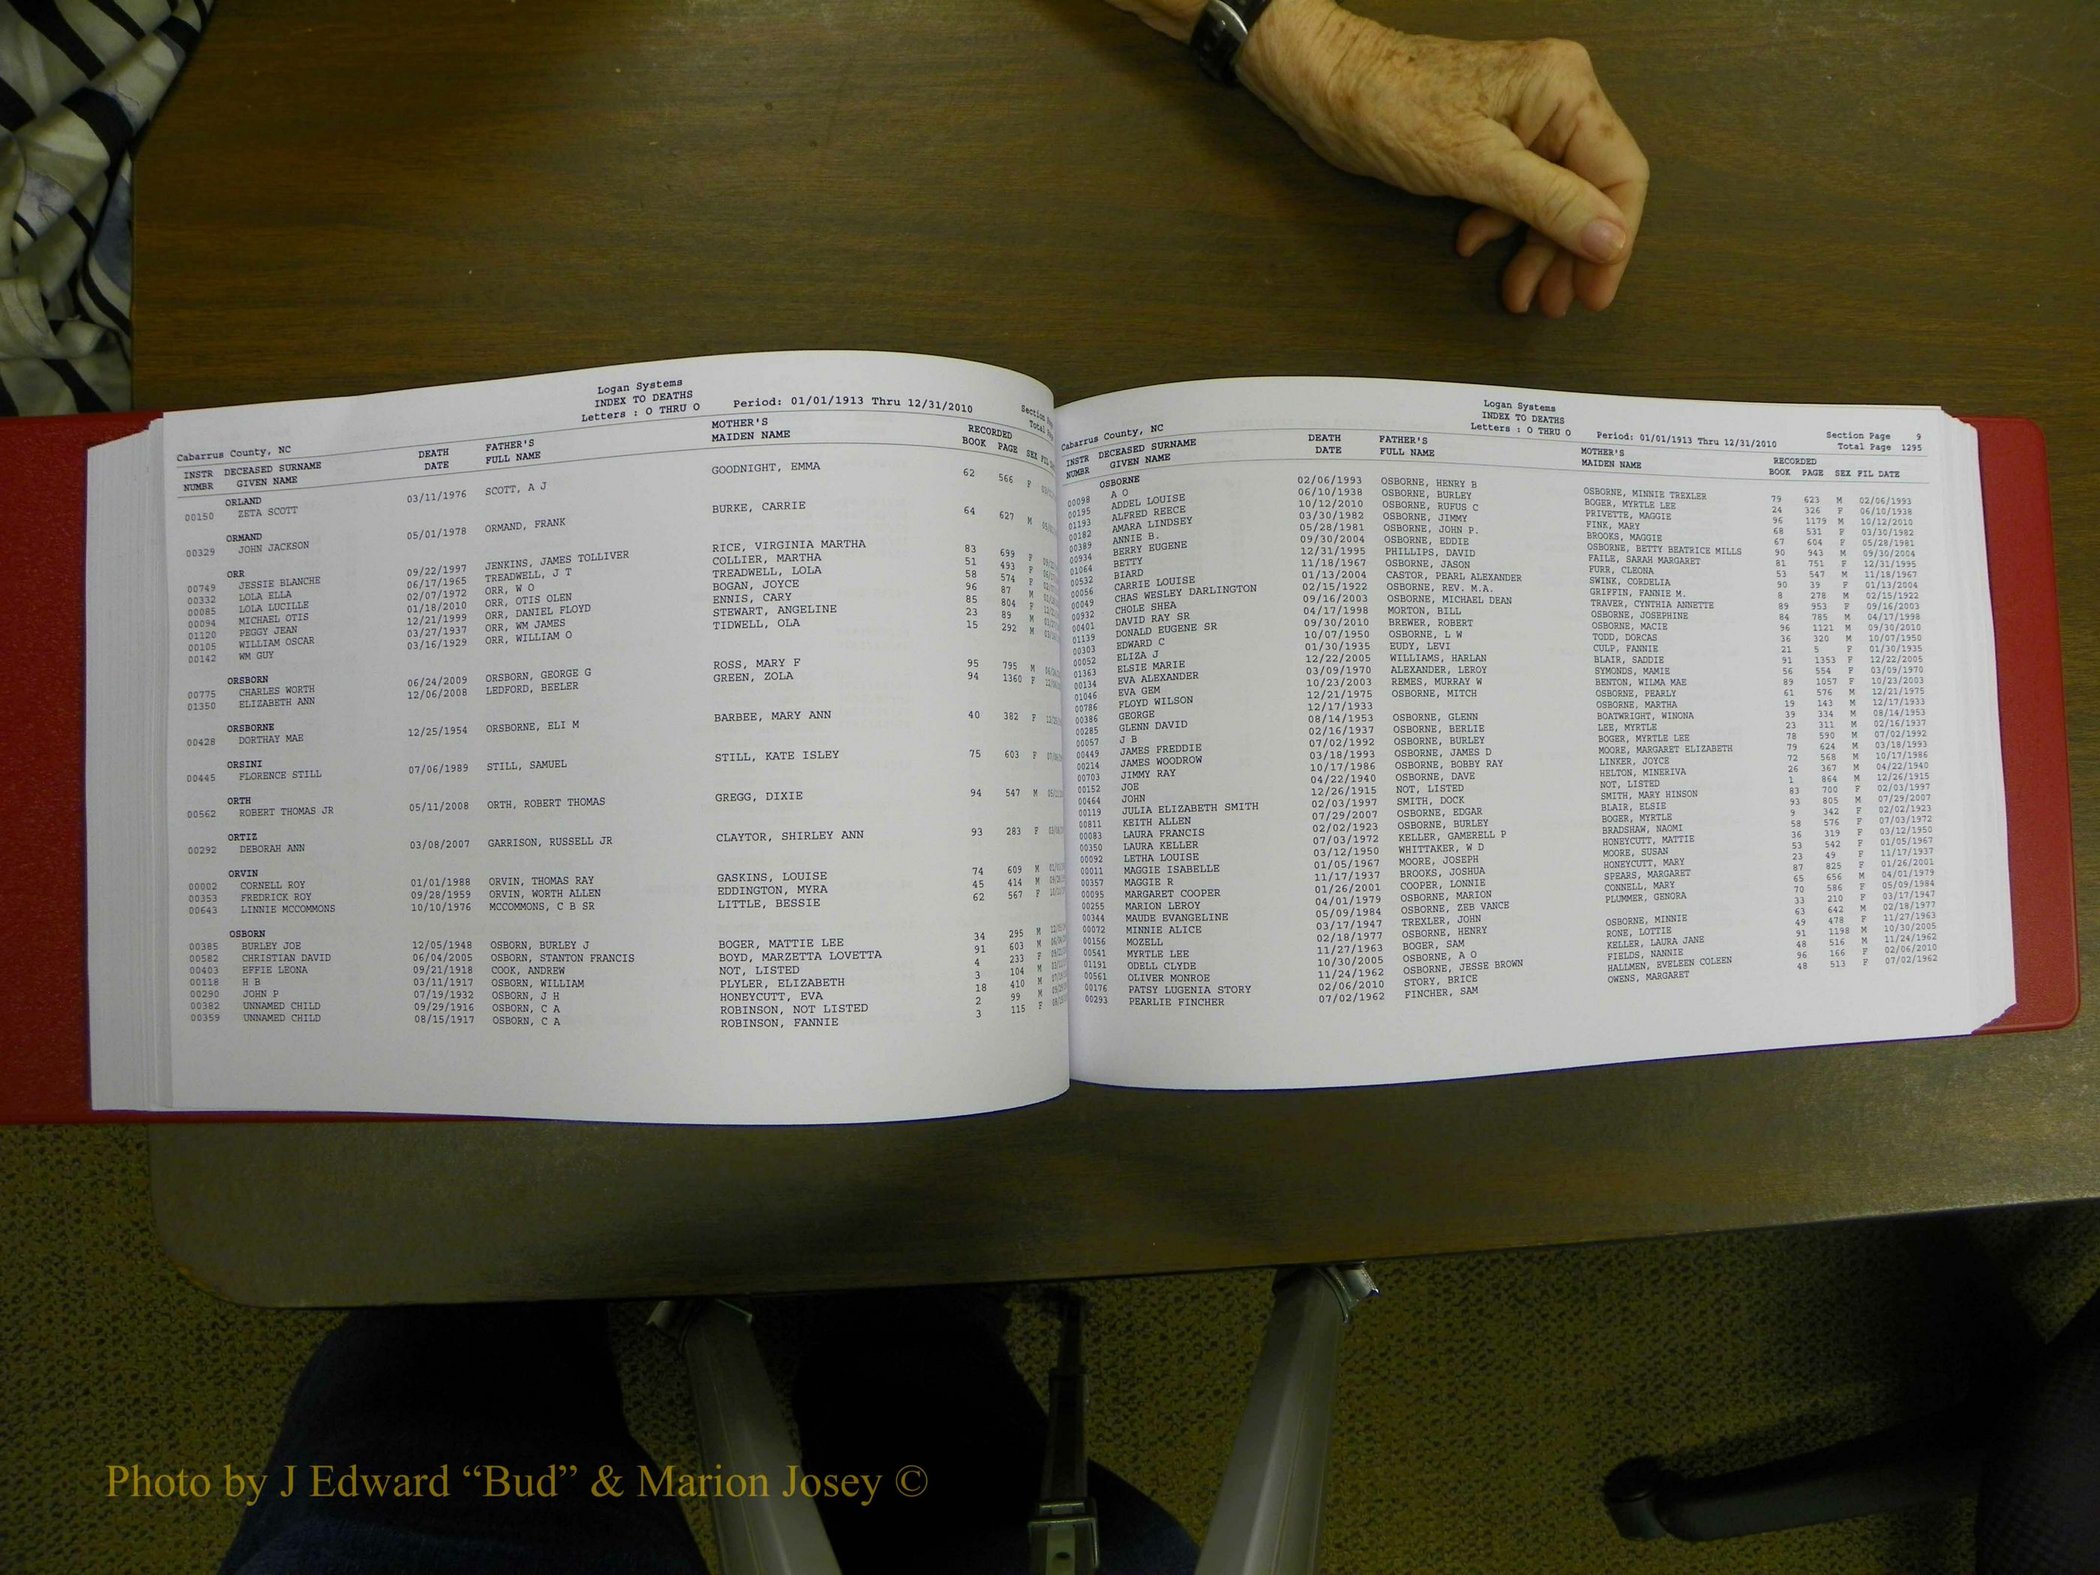 Logan Systems
INDEX TO DEATHS
Letters : O THRU O Period: 01/01/1913 Thru 12/31/2010
Cabarrus County, NC
INSTR DECEASED SURNAME DEATH FATHER'S MOTHER'S RECORDED
NUMBR GIVEN NAME DATE FULL NAME MAIDEN NAME BOOK PAGE SEX
ORLAND
00150 ZETA SCOTT 03/11/1976 SCOTT, A J GOODNIGHT, EMMA 62 566 F
ORMAND
00329 JOHN JACKSON 05/01/1978 ORMAND, FRANK BURKE, CARRIE 64 627 M
ORR
00749 JESSIE BLANCHE 09/22/1997 JENKINS, JAMES TOLLIVER RICE, VIRGINIA MARTHA 83 699 F
00332 LOLA ELLA 06/17/1965 TREADWELL, J T COLLIER, MARTHA 51 493 F
00085 LOLA LUCILLE 02/07/1972 ORR, W O TREADWELL, LOLA 58 574 F
00094 MICHAEL OTIS 01/18/2010 ORR, OTIS OLEN BOGAN, JOYCE 96 87 M
01120 PEGGY JEAN 12/21/1999 ORR, DANIEL FLOYD ENNIS, CARY 85 804 F
00105 WILLIAM OSCAR 03/27/1937 ORR, WM JAMES STEWART, ANGELINE 23 89 M
00142 WM GUY 03/16/1929 ORR, WILLIAM O TIDWELL, OLA 15 292 M
ORSBORN
00775 CHARLES WORTH 06/24/2009 ORSBORN, GEORGE G ROSS, MARY F 95 795 M
01350 ELIZABETH ANN 12/06/2008 LEDFORD, BEELER GREEN, ZOLA 94 1360 F
ORSBORNE
00428 DORTHAY MAE 12/25/1954 ORSBORNE, ELI M BARBEE, MARY ANN 40 382 F
ORSINI
00445 FLORENCE STILL 07/06/1989 STILL, SAMUEL STILL, KATE ISLEY 75 603 F
ORTH
00562 ROBERT THOMAS JR 05/11/2008 ORTH, ROBERT THOMAS GREGG, DIXIE 94 547 M
ORTIZ
00292 DEBORAH ANN 03/08/2007 GARRISON, RUSSELL JR CLAYTOR, SHIRLEY ANN 93 283 F
ORVIN
00002 CORNELL ROY 01/01/1988 ORVIN, THOMAS RAY GASKINS, LOUISE 74 609 M
00353 FREDRICK ROY 09/28/1959 ORVIN, WORTH ALLEN EDDINGTON, MYRA 45 414 M
00643 LINNIE MCCOMMONS 10/10/1976 MCCOMMONS, C B SR LITTLE, BESSIE 62 567 F
OSBORN
00385 BURLEY JOE 12/05/1948 OSBORN, BURLEY J BOGER, MATTIE LEE 34 295 M
00582 CHRISTIAN DAVID 06/04/2005 OSBORN, STANTON FRANCIS BOYD, MARZETTA LOVETTA 91 603 M
00403 EFFIE LEONA 09/21/1918 COOK, ANDREW NOT, LISTED 4 233 F
00118 H B 03/11/1917 OSBORN, WILLIAM PLYLER, ELIZABETH 3 104 M
00290 JOHN P 07/19/1932 OSBORN, J H HONEYCUTT, EVA 18 410 M
00382 UNNAMED CHILD 09/29/1916 OSBORN, C A ROBINSON, NOT LISTED 2 99 M
00359 UNNAMED CHILD 08/15/1917 OSBORN, C A ROBINSON, FANNIE 3 115 F
Logan Systems
INDEX TO DEATHS Section Page 9
Letters : O THRU O Period: 01/01/1913 Thru 12/31/2010 Total Page 1295
Cabarrus County, NC
INSTR DECEASED SURNAME DEATH FATHER'S MOTHER'S RECORDED
NUMBR GIVEN NAME DATE FULL NAME MAIDEN NAME BOOK PAGE SEX FIL DATE
OSBORNE
00098 A O 02/06/1993 OSBORNE, HENRY B OSBORNE, MINNIE TREXLER 79 623 M 02/06/1993
00195 ADDEL LOUISE 06/10/1938 OSBORNE, BURLEY BOGER, MYRTLE LEE 24 326 F 06/10/1938
01193 ALFRED REECE 10/12/2010 OSBORNE, RUFUS C PRIVETTE, MAGGIE 96 1179 M 10/12/2010
00182 AMARA LINDSEY 03/30/1982 OSBORNE, JIMMY FINK, MARY 68 531 F 03/30/1982
00389 ANNIE B. 05/28/1981 OSBORNE, JOHN P. BROOKS, MAGGIE 67 604 F 05/28/1981
00934 BERRY EUGENE 09/30/2004 OSBORNE, EDDIE OSBORNE, BETTY BEATRICE MILLS 90 943 M 09/30/2004
01064 BETTY 12/31/1995 PHILLIPS, DAVID FAILE, SARAH MARGARET 81 751 F 12/31/1995
00532 BIARD 11/18/1967 OSBORNE, JASON FURR, CLEONA 53 547 M 11/18/1967
00056 CARRIE LOUISE 01/13/2004 CASTOR, PEARL ALEXANDER SWINK, CORDELIA 90 39 F 01/13/2004
00049 CHAS WESLEY DARLINGTON 02/15/1922 OSBORNE, REV. M.A. GRIFFIN, FANNIE M. 8 278 M 02/15/1922
00932 CHOLE SHEA 09/16/2003 OSBORNE, MICHAEL DEAN TRAVER, CYNTHIA ANNETTE 89 953 F 09/16/2003
00401 DAVID RAY SR 04/17/1998 MORTON, BILL OSBORNE, JOSEPHINE 84 785 M 04/17/1998
01139 DONALD EUGENE SR 09/30/2010 BREWER, ROBERT OSBORNE, MACIE 96 1121 M 09/30/2010
00303 EDWARD C 10/07/1950 OSBORNE, L W TODD, DORCAS 36 320 M 10/07/1950
00052 ELIZA J 01/30/1935 EUDY, LEVI CULP, FANNIE 21 5 F 01/30/1935
01363 ELSIE MARIE 12/22/2005 WILLIAMS, HARLAN BLAIR, SADDIE 91 1353 F 12/22/2005
00134 EVA ALEXANDER 03/09/1970 ALEXANDER, LEROY SYMONDS, MAMIE 56 554 F 03/09/1970
01046 EVA GEM 10/23/2003 REMES, MURRAY W BENTON, WILMA MAE 89 1057 F 10/23/2003
00786 FLOYD WILSON 12/21/1975 OSBORNE, MITCH OSBORNE, PEARLY 61 576 M 12/21/1975
00386 GEORGE 12/17/1933 OSBORNE, MARTHA 19 143 M 12/17/1933
00285 GLENN DAVID 08/14/1953 OSBORNE, GLENN BOATWRIGHT, WINONA 39 334 M 08/14/1953
00057 J B 02/16/1937 OSBORNE, BERLIE LEE, MYRTLE 23 311 M 02/16/1937
00449 JAMES FREDDIE 07/02/1992 OSBORNE, BURLEY BOGER, MYRTLE LEE 78 590 M 07/02/1992
00214 JAMES WOODROW 03/18/1993 OSBORNE, JAMES D MOORE, MARGARET ELIZABETH 79 624 M 03/18/1993
00703 JIMMY RAY 10/17/1986 OSBORNE, BOBBY RAY LINKER, JOYCE 72 568 M 10/17/1986
00152 JOE 04/22/1940 OSBORNE, DAVE HELTON, MINERIVA 26 367 M 04/22/1940
00464 JOHN 12/26/1915 NOT, LISTED NOT, LISTED 1 864 M 12/26/1915
00119 JULIA ELIZABETH SMITH 02/03/1997 SMITH, DOCK SMITH, MARY HINSON 83 700 F 02/03/1997
00811 KEITH ALLEN 07/29/2007 OSBORNE, EDGAR BLAIR, ELSIE 93 805 M 07/29/2007
00083 LAURA FRANCIS 02/02/1923 OSBORNE, BURLEY BOGER, MYRTLE 9 342 F 02/02/1923
00350 LAURA KELLER 07/03/1972 KELLER, GAMERELL P BRADSHAW, NAOMI 58 576 F 07/03/1972
00092 LETHA LOUISE 03/12/1950 WHITTAKER, W D HONEYCUTT, MATTIE 36 319 F 03/12/1950
00011 MAGGIE ISABELLE 01/05/1967 MOORE, JOSEPH MOORE, SUSAN 53 542 F 01/05/1967
00357 MAGGIE R 11/17/1937 BROOKS, JOSHUA HONEYCUTT, MARY 23 49 F 11/17/1937
00095 MARGARET COOPER 01/26/2001 COOPER, LONNIE SPEARS, MARGARET 87 825 F 01/26/2001
00255 MARION LEROY 04/01/1979 OSBORNE, MARION CONNELL, MARY 65 656 M 04/01/1979
00344 MAUDE EVANGELINE 05/09/1984 OSBORNE, ZEB VANCE PLUMMER, GENORA 70 586 F 05/09/1984
00072 MINNIE ALICE 03/17/1947 TREXLER, JOHN 33 210 F 03/17/1947
00156 MOZELL 02/18/1977 OSBORNE, HENRY OSBORNE, MINNIE 63 642 M 02/18/1977
00541 MYRTLE LEE 11/27/1963 BOGER, SAM RONE, LOTTIE 49 478 F 11/27/1963
01191 ODELL CLYDE 10/30/2005 OSBORNE, A O KELLER, LAURA JANE 91 1198 M 10/30/2005
00561 OLIVER MONROE 11/24/1962 OSBORNE, JESSE BROWN FIELDS, NANNIE 48 516 M 11/24/1962
00176 PATSY LUGENIA STORY 02/06/2010 STORY, BRICE HALLMEN, EVELEEN COLEEN 96 166 F 02/06/2010
00293 PEARLIE FINCHER 07/02/1962 FINCHER, SAM OWENS, MARGARET 48 513 F 07/02/1962
Photo by J Edward “Bud” & Marion Josey ©